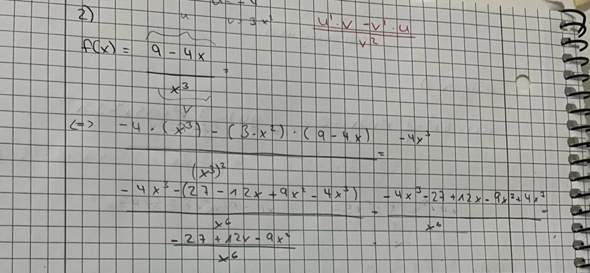 2)
u
(u' · v - v' · u) / v²
f(x) = (9 - 4x) / x³ =
v
<=> (-4 · (x³) - (3·x²) · (9 - 4x)) / (x³)² = -4x³
(-4x³ - (27 - 12x + 9x² - 4x³)) / x⁶ = (-4x³ - 27 + 12x - 9x² + 4x³) / x⁶ =
(-27 + 12x - 9x²) / x⁶